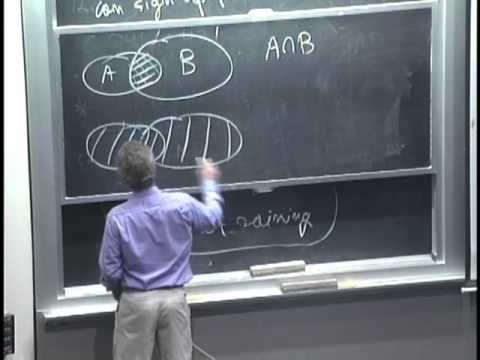 can sign up
A B A∩B
raining